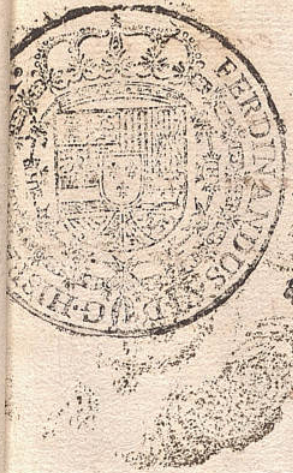 FERDINANDUS·VI·D·G·HISP